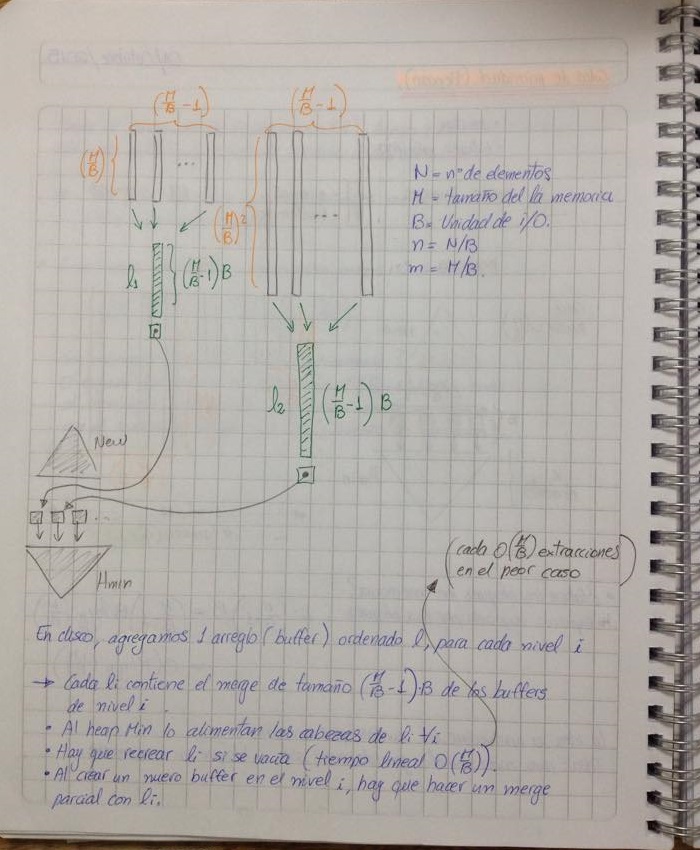 (M/B - 1)
(M/B - 1)
(M/B)
...
(M/B)²
...
N = nº de elementos
M = tamaño del la memoria
B = Unidad de i/O.
n = N/B
m = M/B.
l₁
(M/B - 1) B
l₂
(M/B - 1) B
New
...
Hmin
(cada O(M/B) extracciones
en el peor caso)
En disco, agregamos 1 arreglo (buffer) ordenado lᵢ para cada nivel i
→ Cada li contiene el merge de tamaño (M/B - 1)·B de los buffers
de nivel i.
• Al heap Min lo alimentan las cabezas de li ∀i
• Hay que recrear li si se vacía (tiempo lineal O(M/B)).
• Al crear un nuevo buffer en el nivel i, hay que hacer un merge
parcial con li.